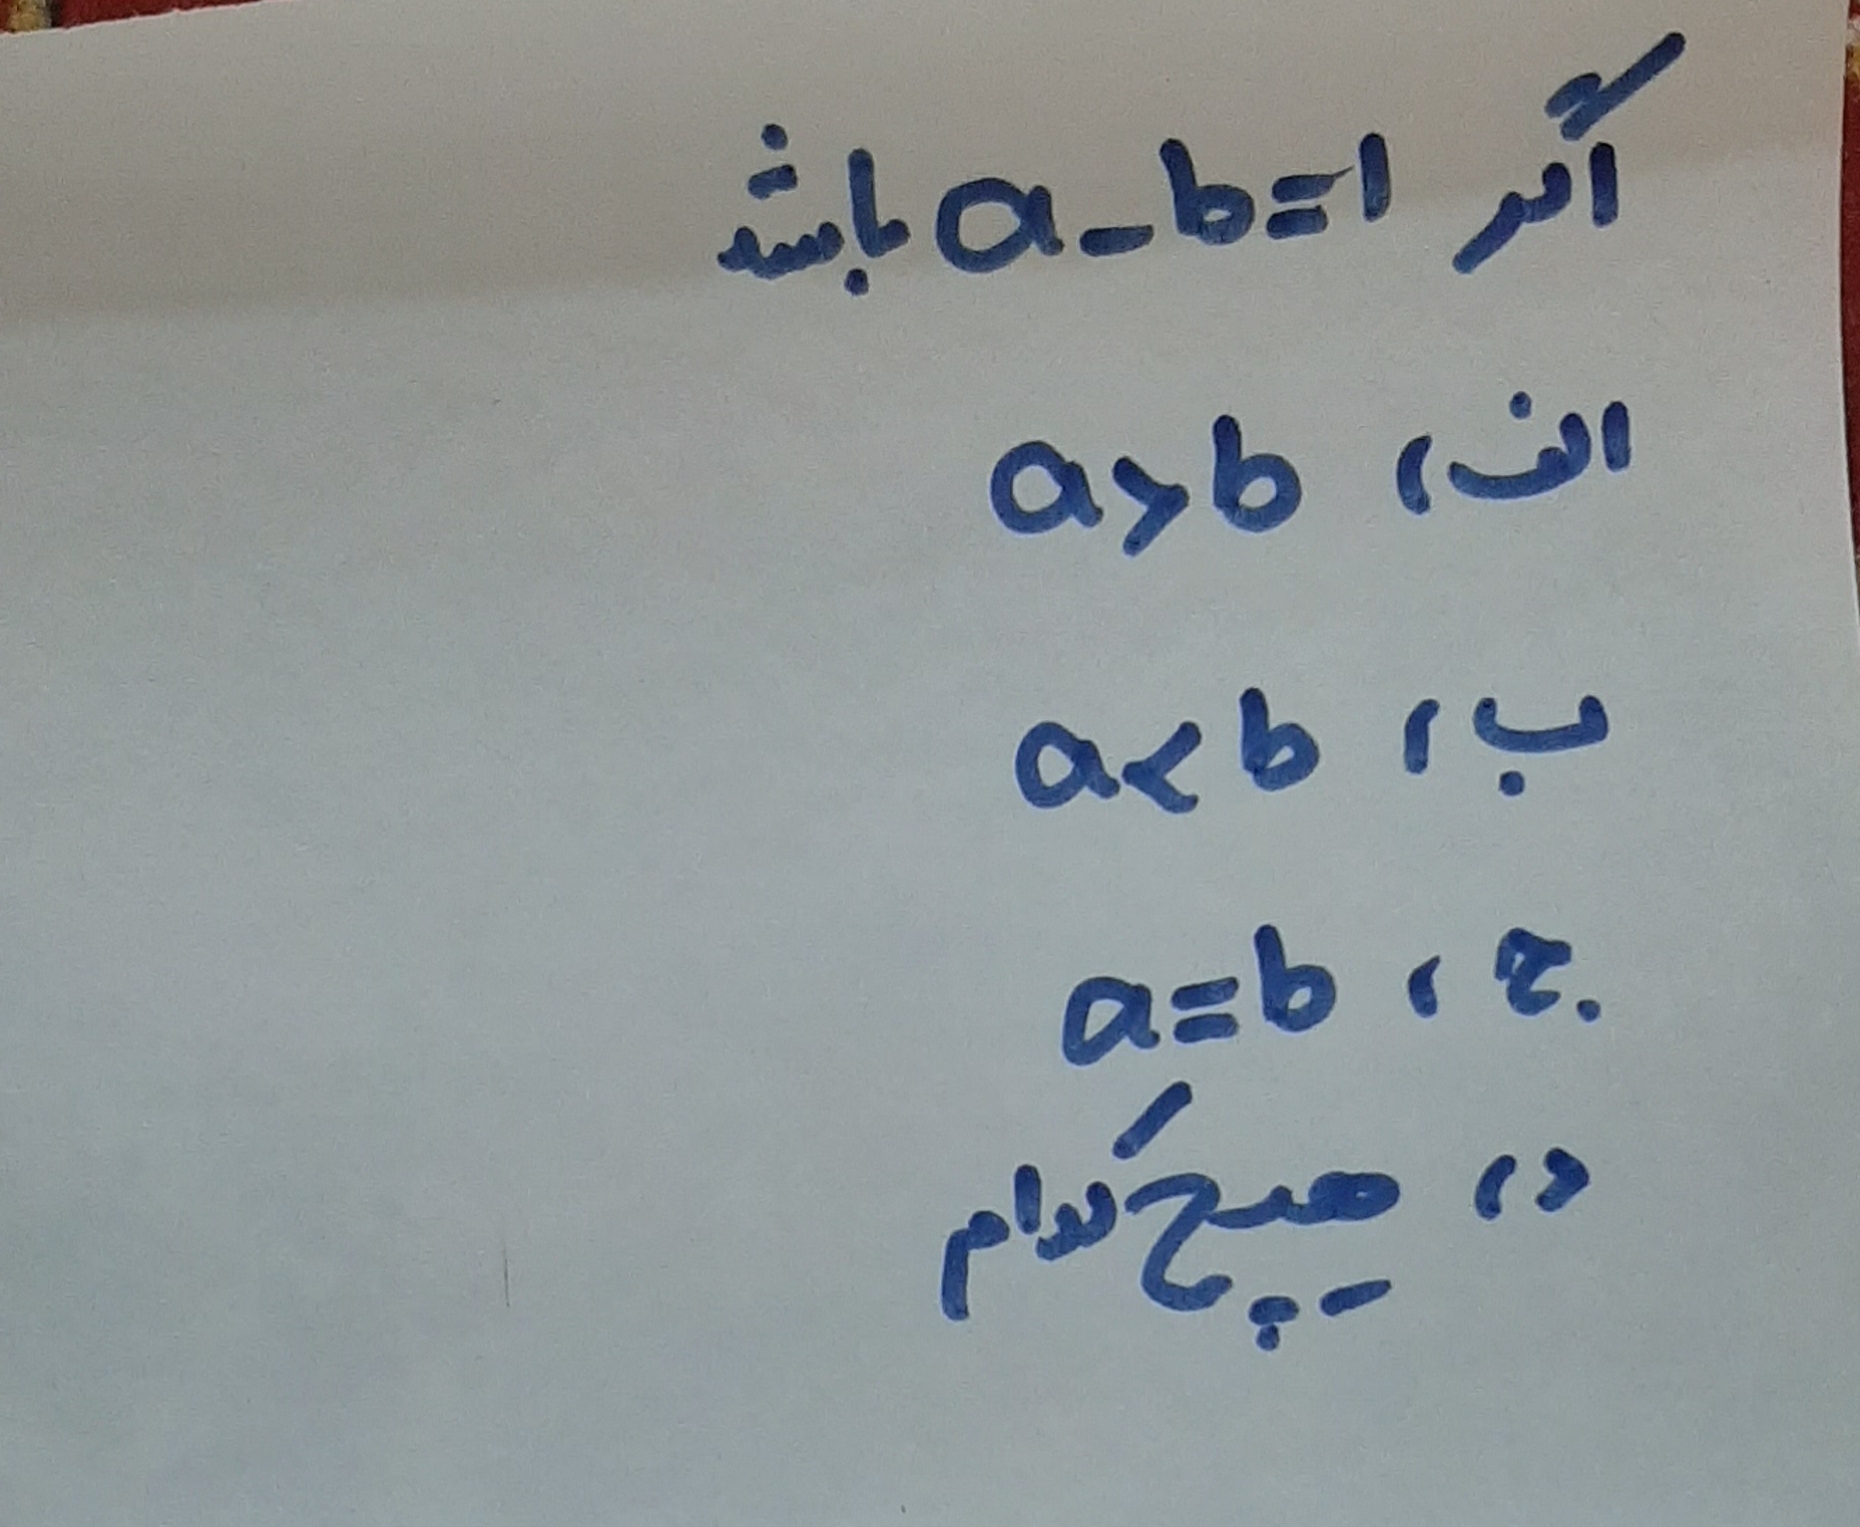 اگر a-b=1 باشد
الف، a>b
ب، a<b
ج، a=b
د، هیچ کدام